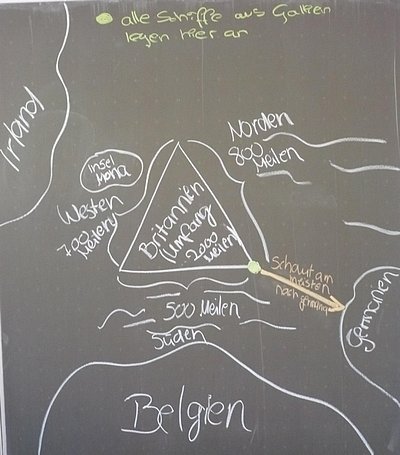 alle Schiffe aus Gallien
legen hier an
Irland
Norden
800
Meilen
Insel
Mona
Westen
700
Meilen
Britannien
(Umfang
2000
Meilen)
Schaut am
meisten
nach
500 Meilen
Süden
Germanien
Belgien